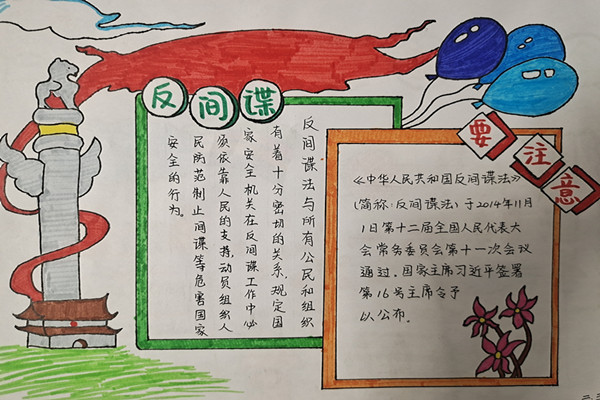 反间谍
反间谍法与所有公民和组织
有着十分密切的关系,规定国
家安全机关在反间谍工作中必
须依靠人民的支持,动员组织人
民防范制止间谍等危害国家
安全的行为。
要注意
《中华人民共和国反间谍法》
(简称:反间谍法)于2014年11月
1日第十二届全国人民代表大
会常务委员会第十一次会议
通过,国家主席习近平签署
第16号主席令予
以公布。